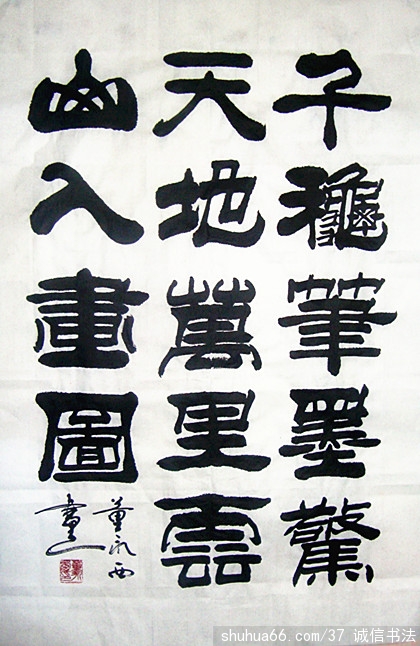 千龝筆墨驚
天地萬里雲
山入畫圖
董永西
書
shuhua66.com/37 诚信书法